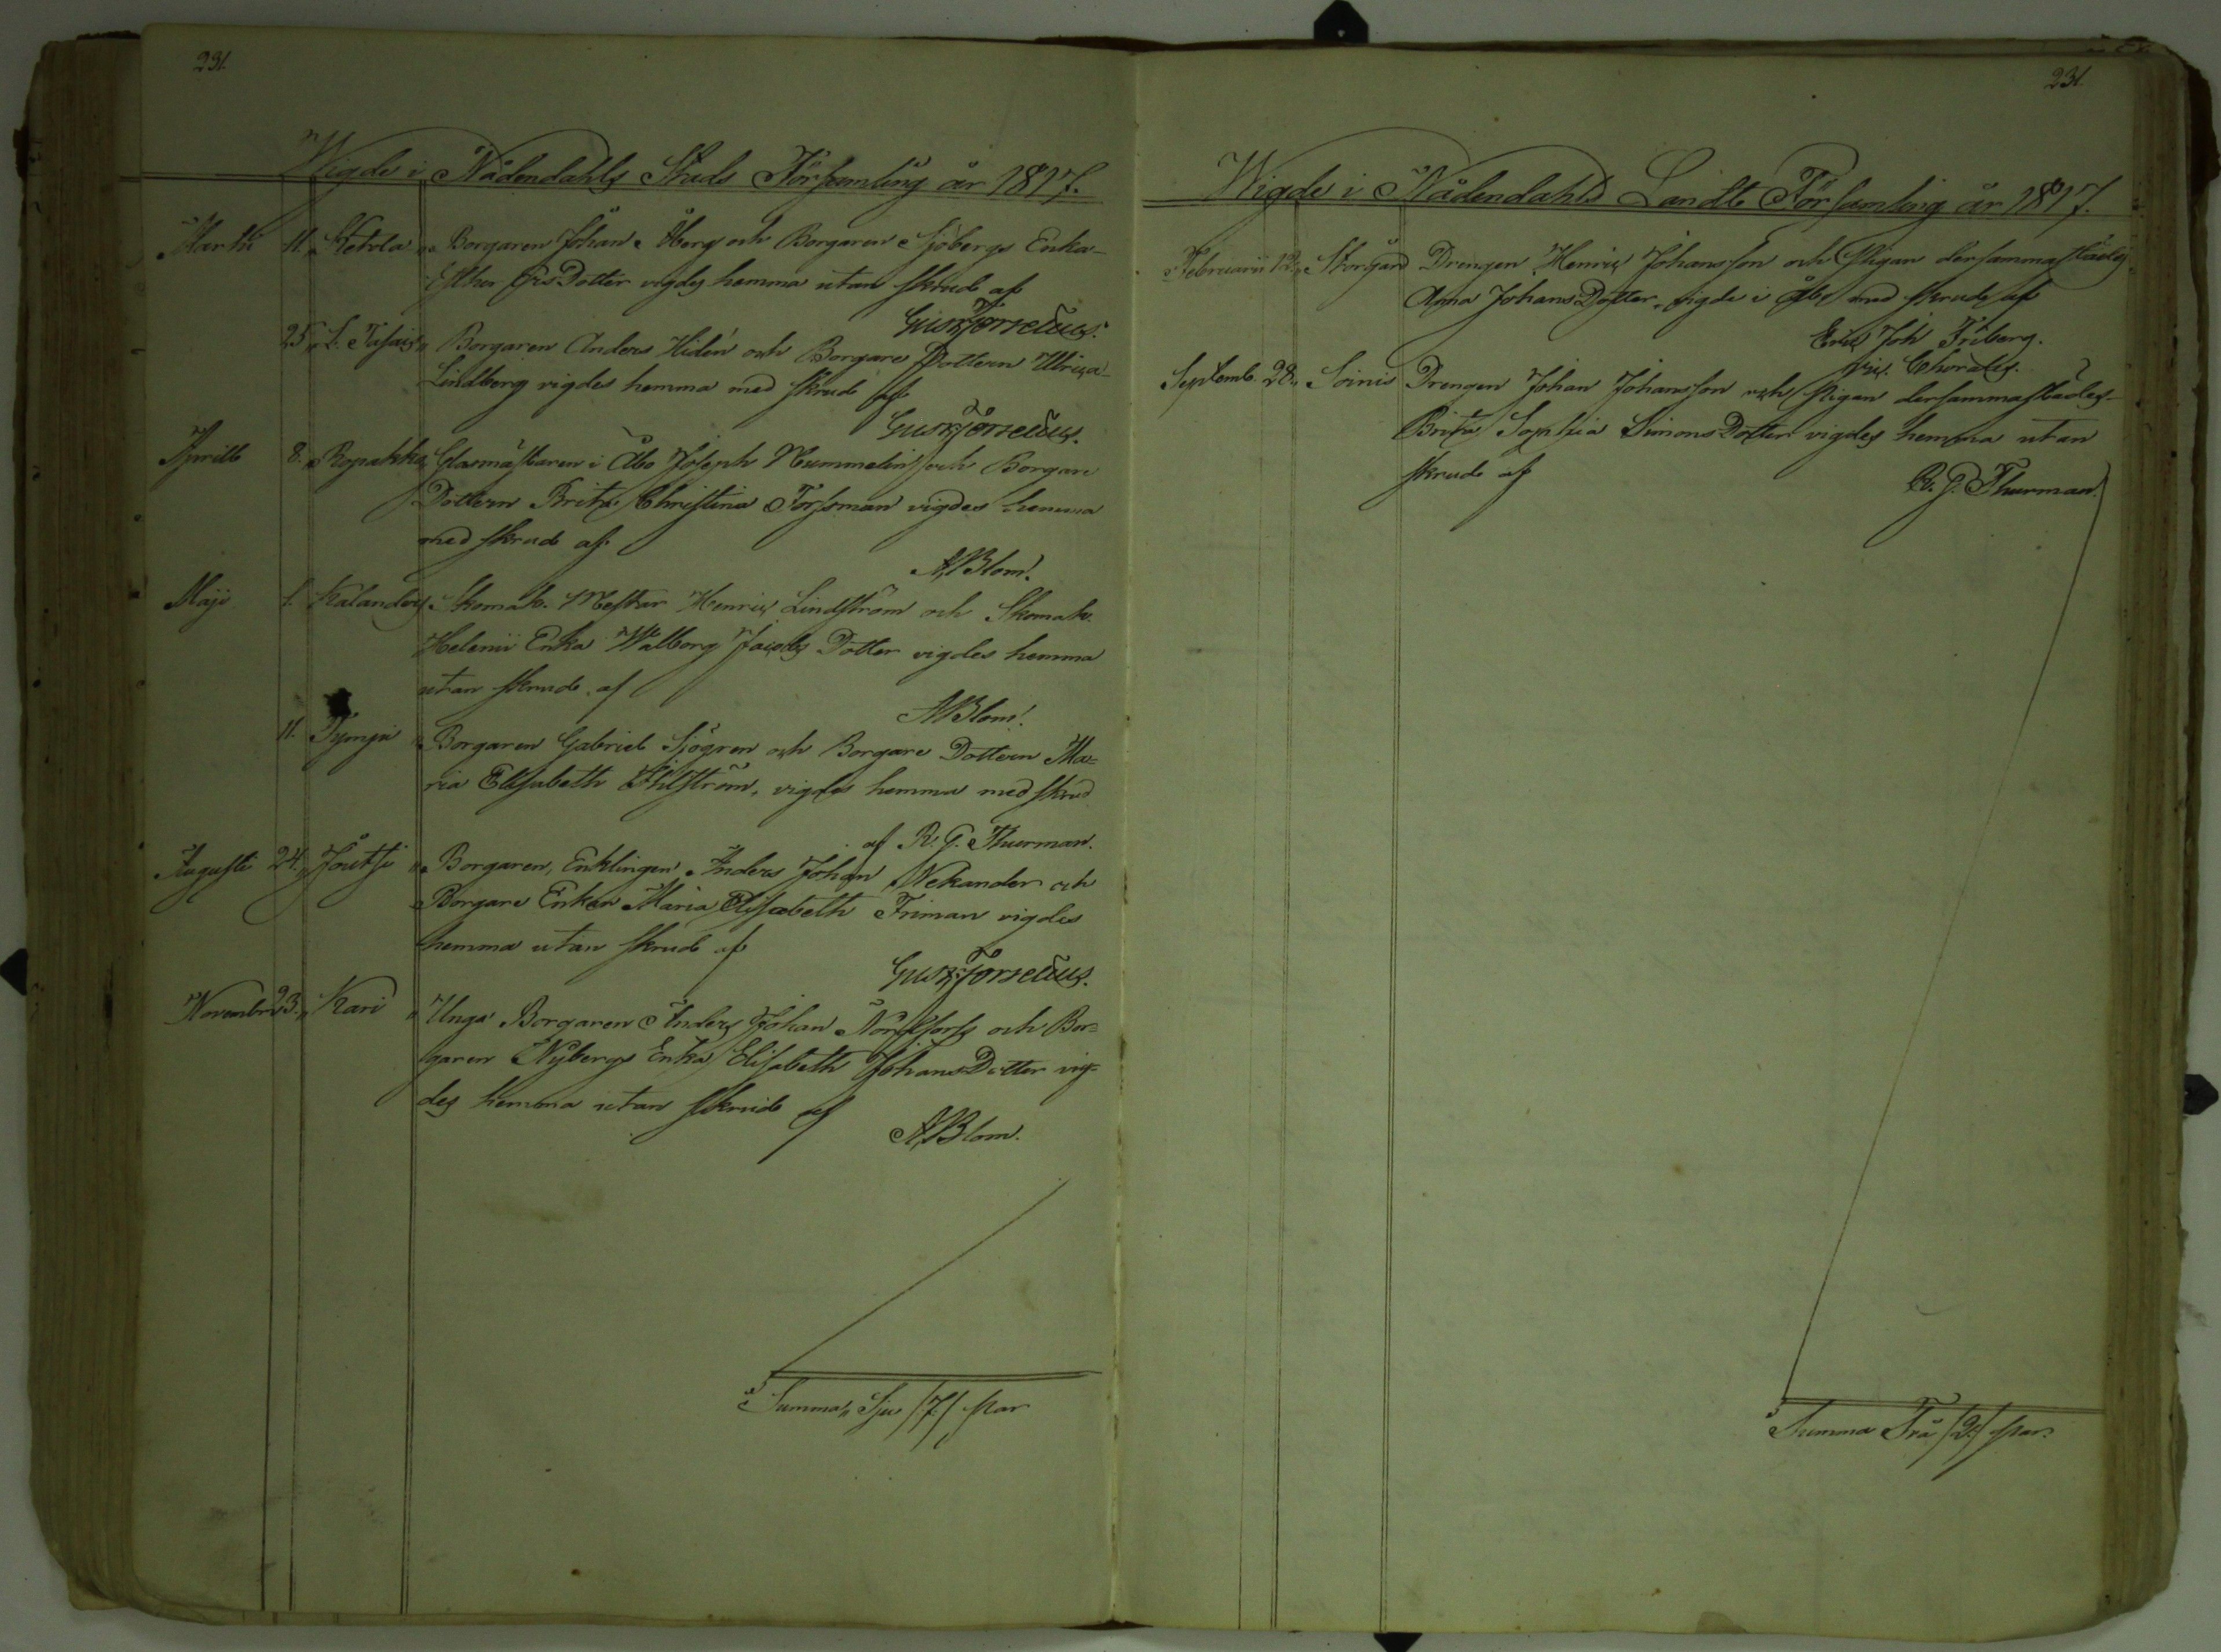 231.
Wigde i Nådendahls Stads Församling år 1817.
Martii 11. Ketola Borgaren Johan Åberg och Borgaren Sjöbergs Enka
Esther Dotter vigdes hemma utan skrud af
Gust. Forselius.
25. L. Borgaren Anders Hidén och Borgare Dottern Ulrica
Lindberg vigdes hemma med skrud af
Gust. Forselius.
Aprill 8. Ropakka Glasmästaren i Åbo Joseph Mummelin och Borgare
Dottern Brita Christina Forsman vigdes hemma
med skrud af
A. Blom.
Maji 1. Kalander Skomak. Mestar Henric Lindström och Skomak.
Helenii Enka Walborg Jacobs Dotter vigdes hemma
utan skrud af
A. Blom.
11. Tympi Borgaren Gabriel Sjögren och Borgare Dottern Ma=
ria Elisabeth vigdes hemma med skrud
af R. G. Thurman.
Augusti 24. Joutsi Borgaren, Enklingen Anders Johan Wekander och
Borgare Enkan Maria Elisabeth Friman vigdes
hemma utan skrud af
Gust. Forselius.
Novembr. 23. Kari Unga Borgaren Anders Johan Nordfors och Bor=
garen Nybergs Enka Elisabeth Johans Dotter vig=
des hemma utan skrud af
A. Blom.
Summa Sju /7/ Par
231.
Wigde i Nådendahls Landts Församling år 1817.
Februarii 12. Storgård Drengen Henric Johansson och Pigan dersammastädes
Anna Johans Dotter vigde i Åbo med skrud af
Eric Joh Friberg.
vic. Choralis.
Septemb. 28. Soinis Drengen Johan Johansson och Pigan dersammastädes
Brita Sophia Simons Dotter vigdes hemma utan
skrud af
R. G. Thurman.
Summa Två /2/ Par.